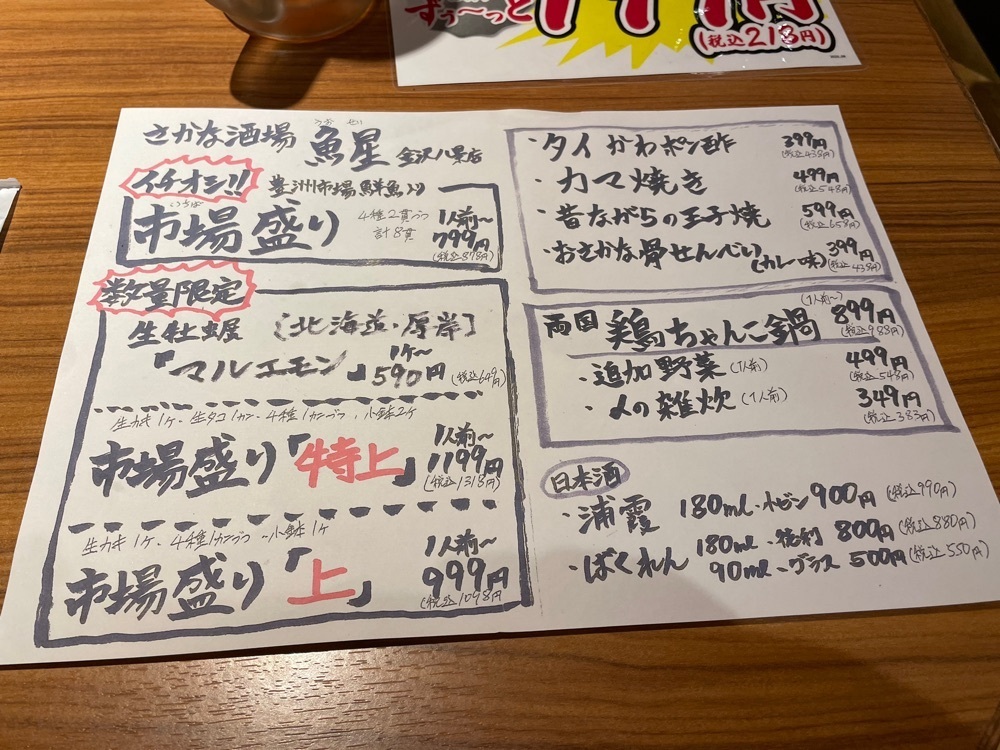 ずぅ〜っと
(税込218円)
さかな酒場 魚星 金沢八景店
うお せい
イチオシ!! 豊洲市場鮮魚入り
いちば
市場盛り 4種2貫づつ 計8貫 1人前〜 799円 (税込878円)
数量限定
生牡蛎 [北海道・厚岸]
「マルエモン」 1ケ〜 590円 (税込649円)
生カキ1ケ、生タコ1カン、4種1カンづつ、小鉢2ケ
市場盛り「特上」 1人前〜 1199円 (税込1318円)
生カキ1ケ、4種1カンづつ 小鉢1ケ
市場盛り「上」 1人前〜 999円 (税込1098円)
・タイかわポン酢 399円 (税込438円)
・カマ焼き 499円 (税込548円)
・昔ながらの玉子焼 599円 (税込658円)
・おさかな骨せんべい(カレー味) 399円 (税込438円)
両国 鶏ちゃんこ鍋 (1人前〜) 899円 (税込988円)
・追加野菜 (1人前) 499円 (税込548円)
・〆の雑炊 (1人前) 349円 (税込383円)
日本酒
・浦霞 180ml・トクビン 900円 (税込990円)
・ばくれん 180ml・徳利 800円 (税込880円)
90ml・グラス 500円 (税込550円)